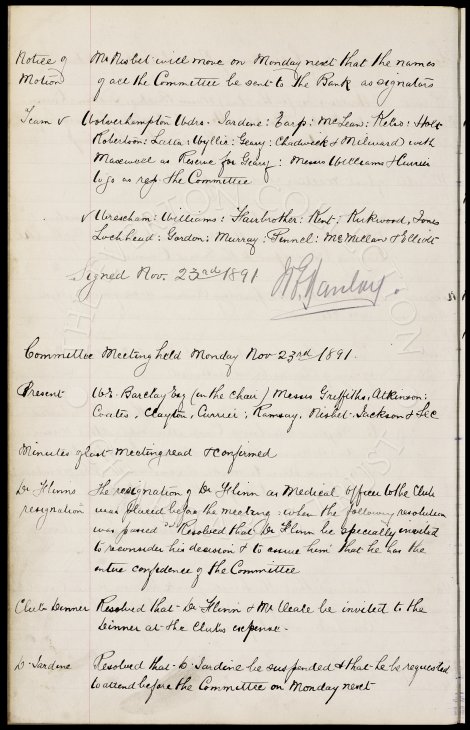 Notice of Mr Nisbet will move on Monday next that the names
Motion of all the Committee be sent to the Bank as signators
Team v Wolverhampton Wdrs. Jardine: Earp: McLean: Kelso: Holt
Robertson: Latta: Wyllie: Geary: Chadwick & Milward) with
Maxwell as Reserve for Geary: Messrs Williams & Currier
to go as rep the Committee
v Wrexham: Williams: Fairbrother: Kent, Kirkwood, Jones
Lochhead: Gordon: Murray: Pinnel: McMillan & Elliott
Signed Nov. 23rd 1891
Committee Meeting held Monday Nov 23rd 1891.
Present W.E. Barclay Esq (in the chair) Messrs Griffiths, Atkinson:
Coates, Clayton, Currier; Ramsay, Nisbet. Jackson & Sec
Minutes of last meeting read & confirmed
Dr Flinns The resignation of Dr Flinn as Medical Officer to the Club
resignation was placed before the meeting: when the following resolution
was passed "Resolved that Dr Flinn be specially invited
to reconsider his decision & to assure him that he has the
entire confidence of the Committee
Club Dinner Resolved that Dr Flinn & Mr be invited to the
Dinner at the Clubs expense.
D. Jardine Resolved that D. Jardine be suspended & that he be requested
to attend before the Committee on Monday next